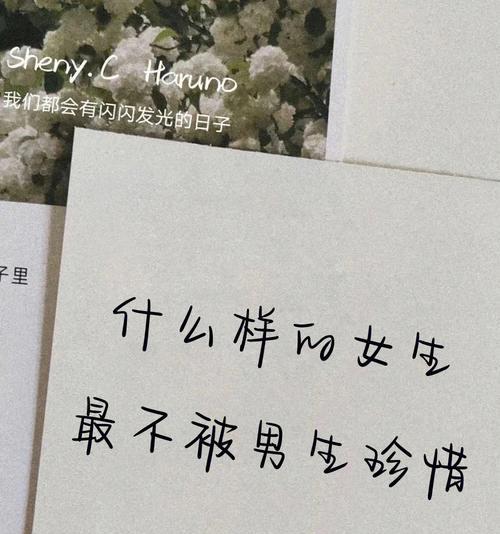 Sheny.C Haruno
我们都会有闪闪发光的日子
子里
什么样的女生
最不被男生珍惜